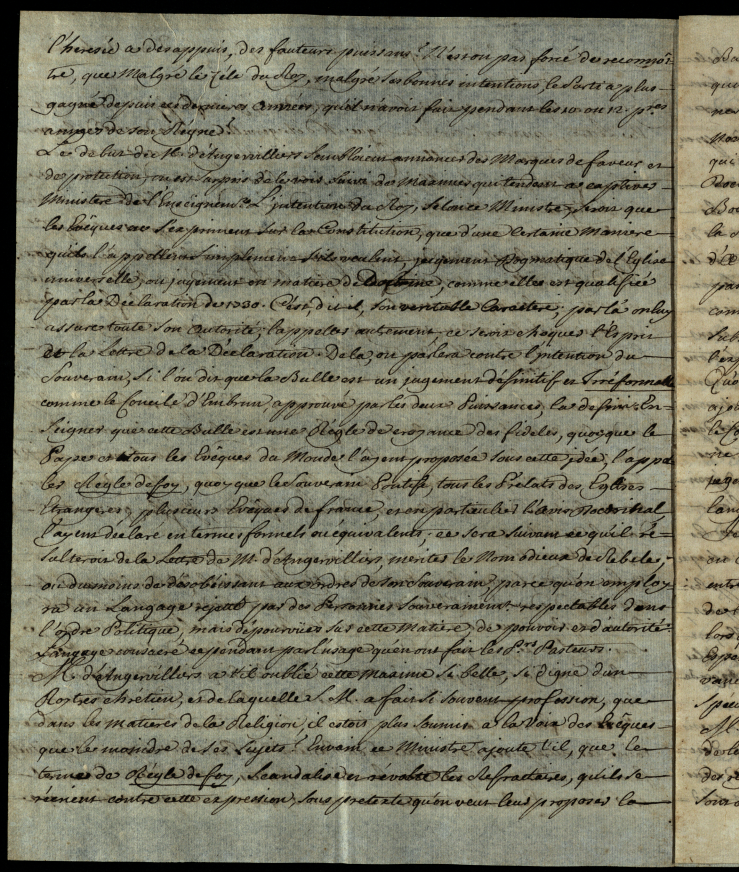 l'heresie a des appuis, des fauteurs puissans? N'est on pas forcé de reconnoî-
tre, que Malgré le zele du Roy, malgre ses bonnes intentions, le Parti a plus
gagné depuis ces dernieres années, qu'il n'avoit fait pendant les 10 ou 12 p.res
années de son Regne?
Le debut de M. d'Angervilliers sembloit annoncer des Marques de faveur et
de protection, on est surpris de le voir suivi des Maximes qui tendent a captiver le
Ministere de l'Enseignem.t L'intention du Roy, selon ce Ministre, seroit que
les Evêques ne s'expriment sur la Constitution, que d'une certaine Maniere
qu'ils l'appellent simplement s'ils veulent, jugement Dogmatique de l'Eglise
universelle, ou jugement en matiere de Doctrine, comme elle est qualifiée
par la Déclaration de 1730. C'est, dit il, son veritable Caractere, par là on luy
assure toute son autorité; l'appeller autrement ce seroit choquer l'Esprit
et la Lettre de la Déclaration. De la, on parlera contre l'intention du
Souverain, si l'on dit que la Bulle est un jugement définitif et Irréformable
comme le Concile d'Embrun, approuvé par les deux Puissances, la definit. En-
seigner que cette Bulle est une Régle de croyance des fideles, quoyque le
Pape et tous les Evêques du Monde l'ayent proposée sous cette idée, l'appel
ler Régle de foy, quoyque le Souverain Pontife, tous les Prélats des Eglises
Etrangeres, plusieurs Evêques de france, et en particulier l'avis doctrinal
l'ayent déclaré en termes formels ou équivalents; ce sera suivant ce qu'il ré-
sulteroit de la Lettre de M. d'Angervilliers, mériter le Nom odieux de Rebele,
ou du moins de désobéissant aux ordres de son Souverain, parce qu'on employ
ra un Langage rejetté par des Personnes souverainement respectables dans
l'ordre Politique, mais dépourvües sur cette Matiere de pouvoir et d'autorité.
Langage consacré cependant par l'usage qu'en ont fait les P.ers Pasteurs.
M. d'Angervilliers a t'il oublié cette maxime si belle, si digne d'un
Roy tres chrétien, et de laquelle S. M. a fait si souvent profession, que
dans les matieres de la Religion, il estoit plus soumis a la Voix des Evêques
que le moindre de ses sujets? Envain ce Ministre ajoute t'il, que le
terme de Régle de foy, scandalise et révolte les Refractaires, qu'ils se
récrient contre cette expression, sous pretexte qu'on veut leur proposer la